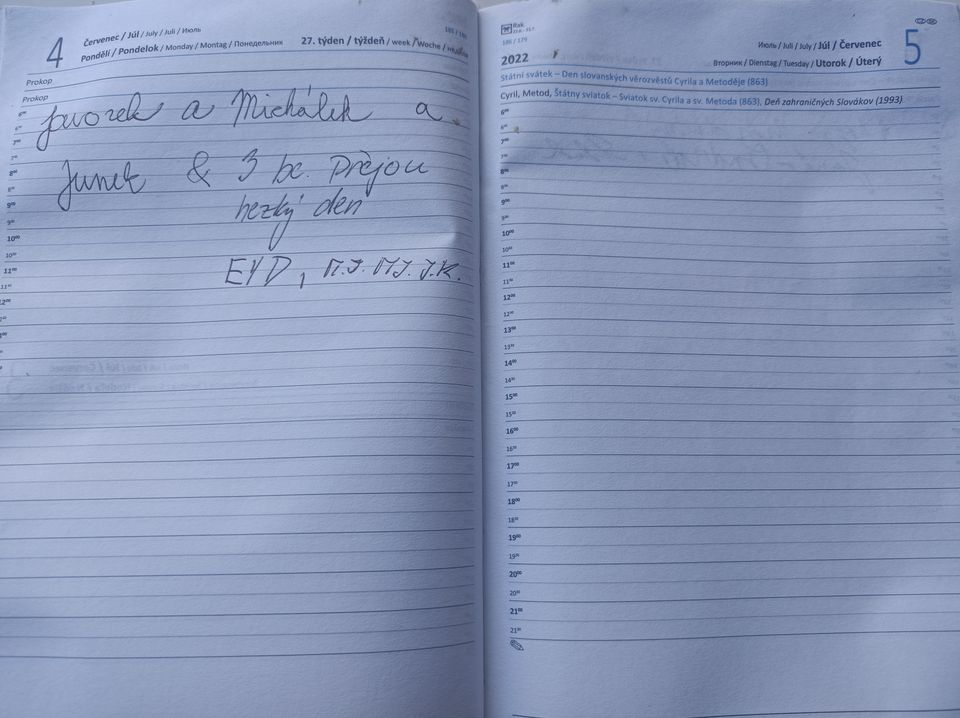 4
Červenec / Júl / July / Juli / Июль
Pondělí / Pondelok / Monday / Montag / Понедельник
27. týden / týždeň / week / Woche /
185 / 180
Prokop
Prokop
a Michálek a
Junek & 3 bc. Přejou
hezký den
EYD, M.J. MJ. J.K.
6⁰⁰
6³⁰
7⁰⁰
7³⁰
8⁰⁰
8³⁰
9⁰⁰
9³⁰
10⁰⁰
10³⁰
11⁰⁰
11³⁰
12⁰⁰
Rak
22.6. - 22.7.
186 / 179
2022
Июль / Juli / July / Júl / Červenec
Вторник / Dienstag / Tuesday / Utorok / Úterý
5
Státní svátek – Den slovanských věrozvěstů Cyrila a Metoděje (863)
Cyril, Metod, Štátny sviatok – Sviatok sv. Cyrila a sv. Metoda (863), Deň zahraničných Slovákov (1993)
6⁰⁰
6³⁰
7⁰⁰
7³⁰
8⁰⁰
8³⁰
9⁰⁰
9³⁰
10⁰⁰
10³⁰
11⁰⁰
11³⁰
12⁰⁰
12³⁰
13⁰⁰
13³⁰
14⁰⁰
14³⁰
15⁰⁰
15³⁰
16⁰⁰
16³⁰
17⁰⁰
17³⁰
18⁰⁰
18³⁰
19⁰⁰
19³⁰
20⁰⁰
20³⁰
21⁰⁰
21³⁰